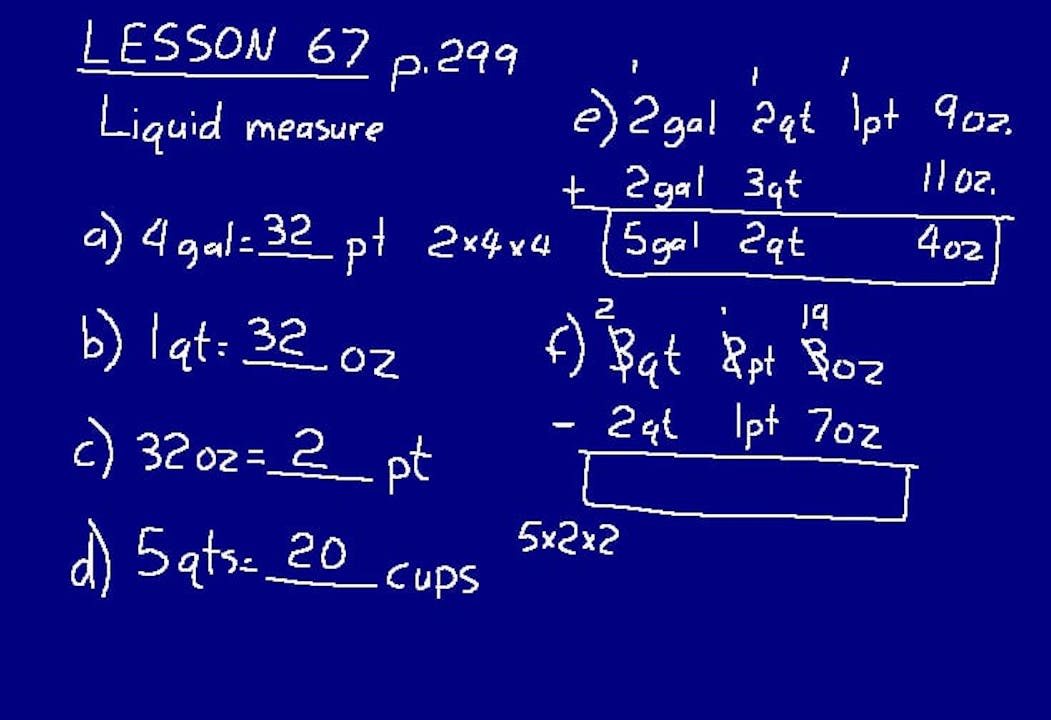 LESSON 67 p.299
Liquid measure
a) 4 gal = 32 pt 2×4×4
b) 1 qt = 32 oz
c) 32 oz = 2 pt
d) 5 qts = 20 cups
5×2×2
1 1 1
e) 2 gal 2 qt 1 pt 9 oz.
+ 2 gal 3 qt 11 oz.
5 gal 2 qt 4 oz
2 1 19
f) 3 qt 2 pt 3 oz
- 2 qt 1 pt 7 oz